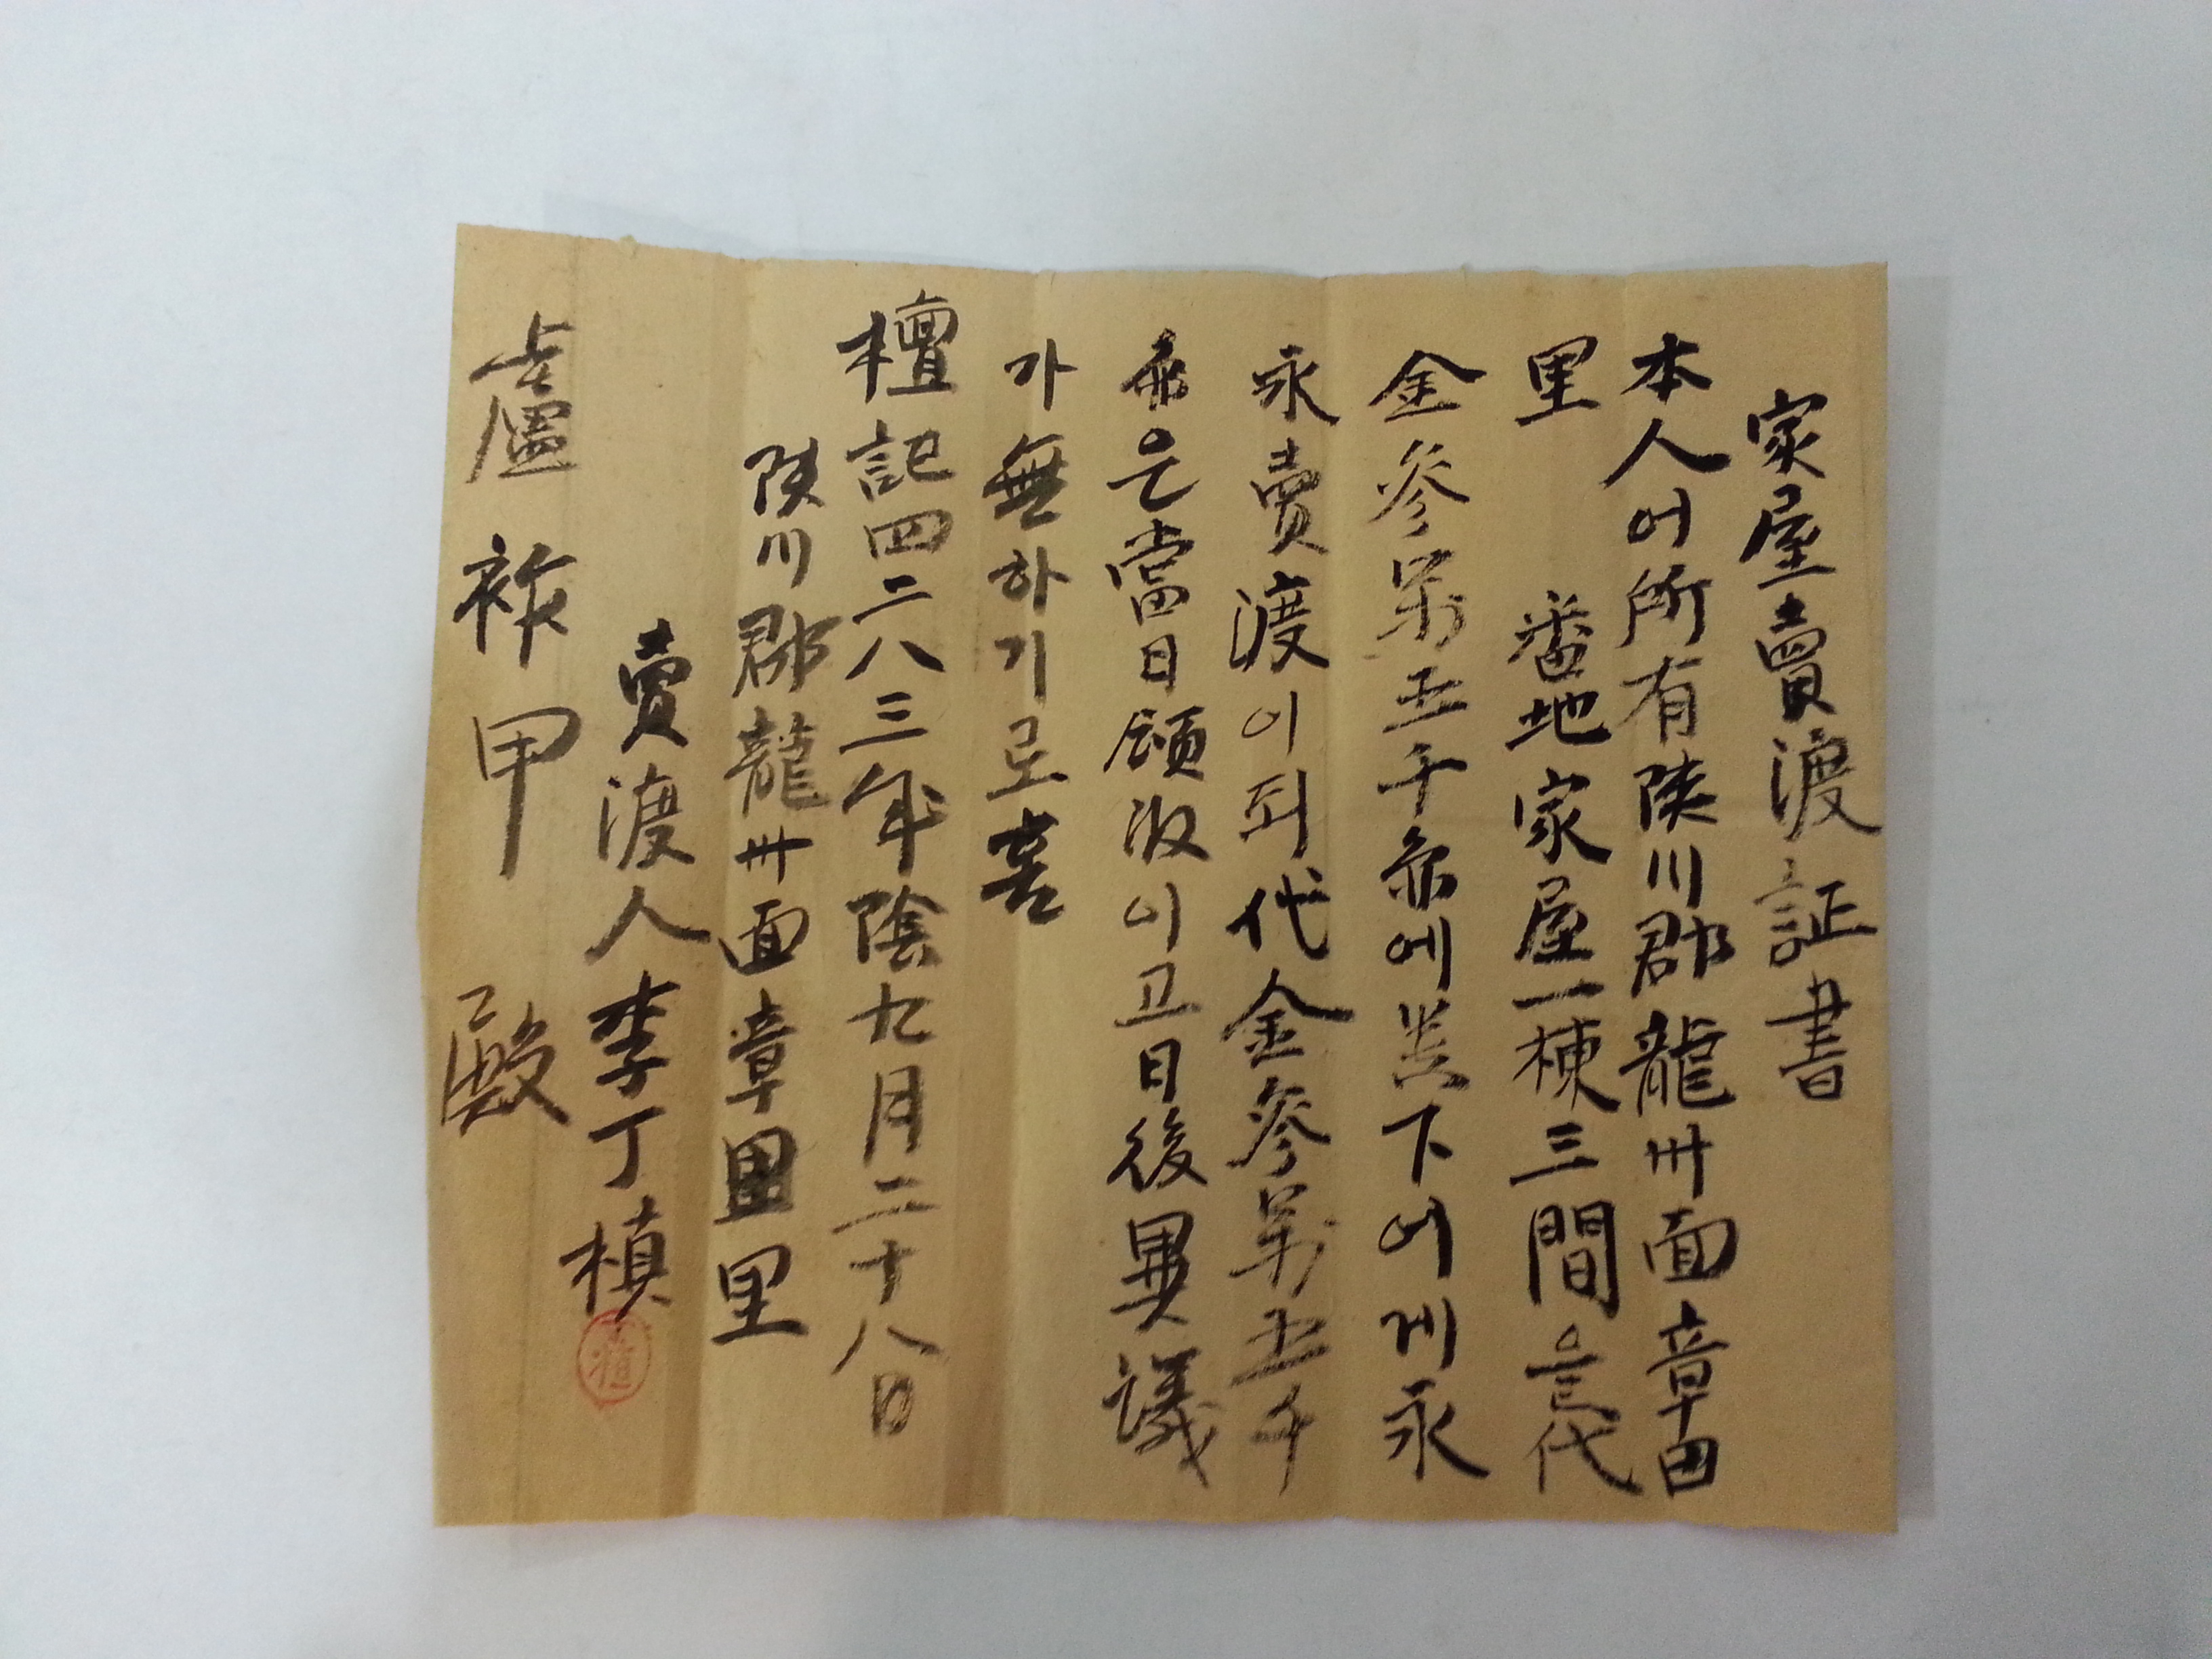 家屋賣渡証書
本人어所有陜川郡龍州面章田
里 番地家屋一棟三間을代
金參萬五千 에貴下어게永
永賣渡이되代金參萬五千
은當日領收이고日後異議
가無하기로홈
檀記四二八三年陰九月二十八日
陜川郡龍州面章田里
賣渡人李丁楨
盧祚甲 殿